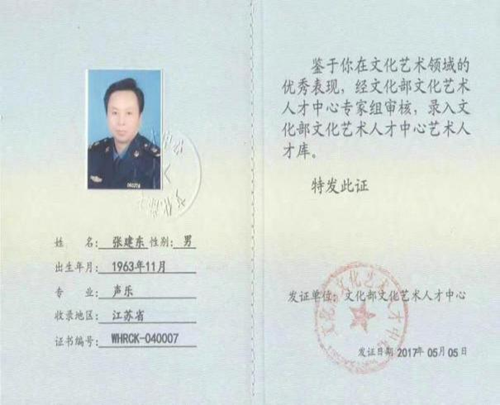 姓　名：张建东 性别：男
出生年月：1963年11月
专　业：声乐
收录地区：江苏省
证书编号：WHRCK-040007
鉴于你在文化艺术领域的
优秀表现，经文化部文化艺术
人才中心专家组审核，录入文
化部文化艺术人才中心艺术人
才库。
特发此证
发证单位：文化部文化艺术人才中心
发证日期2017年05月05日